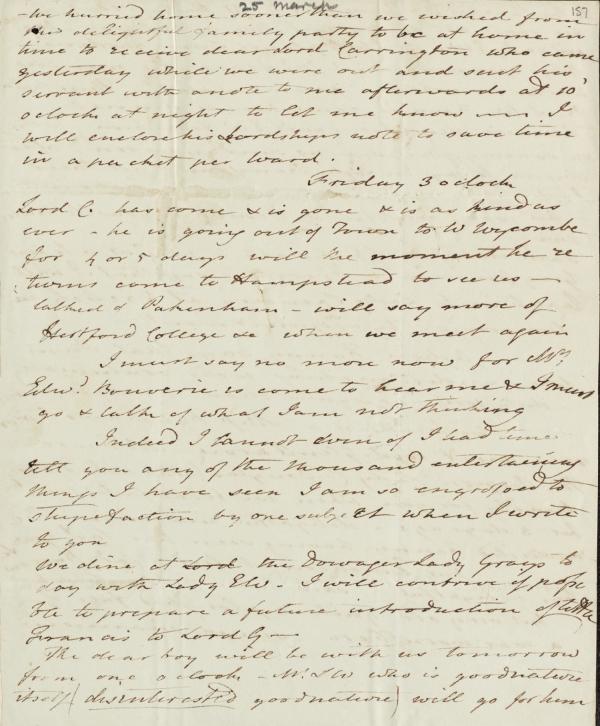 25 March
157
- we hurried home sooner than we wished from
the delightful family party to be at home in
time to receive dear Lord Carrington who came
yesterday while we were out and sent his
servant with a note to me afterwards at 10
oclock at night to let me know — I
will enclose his Lordships note to save time
in a packet per Ward.
Friday 3 oclock
Lord C. has come & is gone & is as kind as
ever - he is going out of Town to W Wycombe
for 4 or 5 days will the moment he re
turns come to Hampstead to see us —
talked of Pakenham - will say more of
Hertford College &c when we meet again
I must say no more now for Mrs.
Edwd. Bouverie is come to hear me & I must
go & talk of what I am not thinking
Indeed I cannot even if I had time
tell you any of the thousand entertaining
things I have seen I am so engrossed to
stupefaction by one subject when I write
to you
We dine at Lord the Dowager Lady Greys to
day with Lady E W - I will contrive if poss
ble to prepare a future introduction of little
Francis to Lord G —
The dear boy will be with us tomorrow
from one oclock - Mr. S W who is goodnature
itself (disinterested goodnature) will go for him